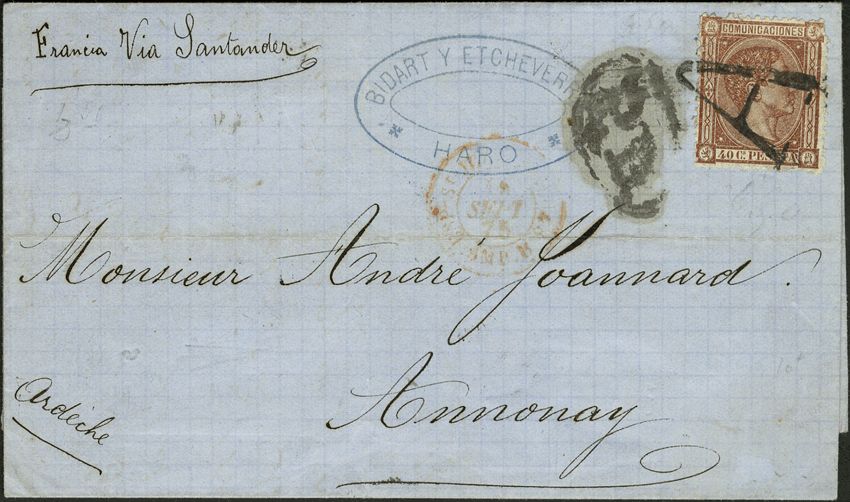 Francia Via Santander
BIDART Y ETCHEVERR
HARO
COMUNICACIONES
40 Cs PE
SET
75
Monsieur André Joannard.
Annonay
Ardèche